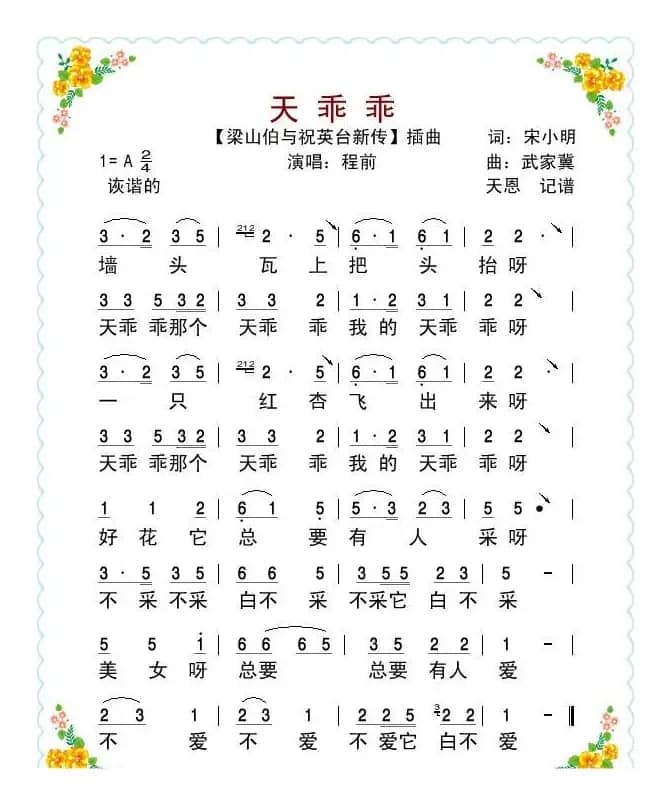 天 乖 乖
【梁山伯与祝英台新传】插曲 词：宋小明
1= A 2/4 演唱：程前 曲：武家冀
诙谐的 天恩 记谱
3 · 2 3 5 | 212 2 · 5 | 6 · 1 6 1 | 2 2 |
墙 头 瓦 上 把 头 抬 呀
3 3 5 3 2 | 3 3 2 | 1 · 2 3 1 | 2 2 |
天乖 乖那个 天乖 乖 我 的 天乖 乖 呀
3 · 2 3 5 | 212 2 · 5 | 6 · 1 6 1 | 2 2 |
一 只 红 杏 飞 出 来 呀
3 3 5 3 2 | 3 3 2 | 1 · 2 3 1 | 2 2 |
天乖 乖那个 天乖 乖 我 的 天乖 乖 呀
1 1 2 | 6 1 5 | 5 · 3 2 3 | 5 5 • |
好 花 它 总 要 有 人 采 呀
3 · 5 3 5 | 6 6 5 | 3 5 5 2 3 | 5 - |
不 采 不采 白不 采 不采它 白 不 采
5 5 1 | 6 6 6 5 | 3 5 2 3 | 1 - |
美 女 呀 总要 总要 有人 爱
2 3 1 | 2 3 1 | 2 2 5 3 2 2 | 1 - ‖
不 爱 不 爱 不 爱它 白不 爱